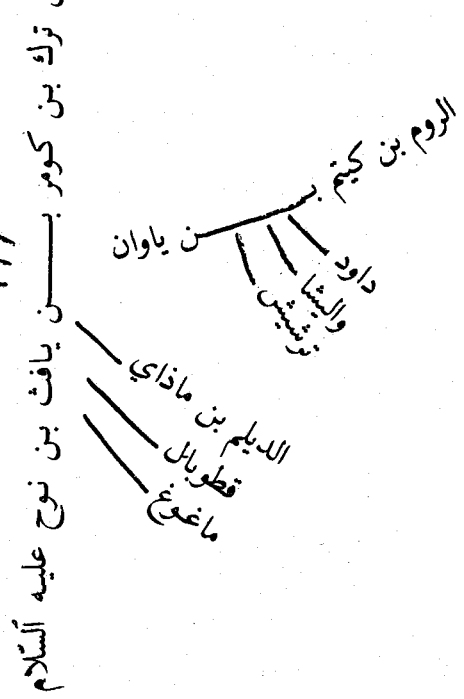 ترك بن كومر بـــن يافث بن نوح عليه السلام
الروم بن كيتم بـــن ياوان
داود
واليشا
ترشيش
الديلم بن ماذاي
قطوبال
ماغوغ